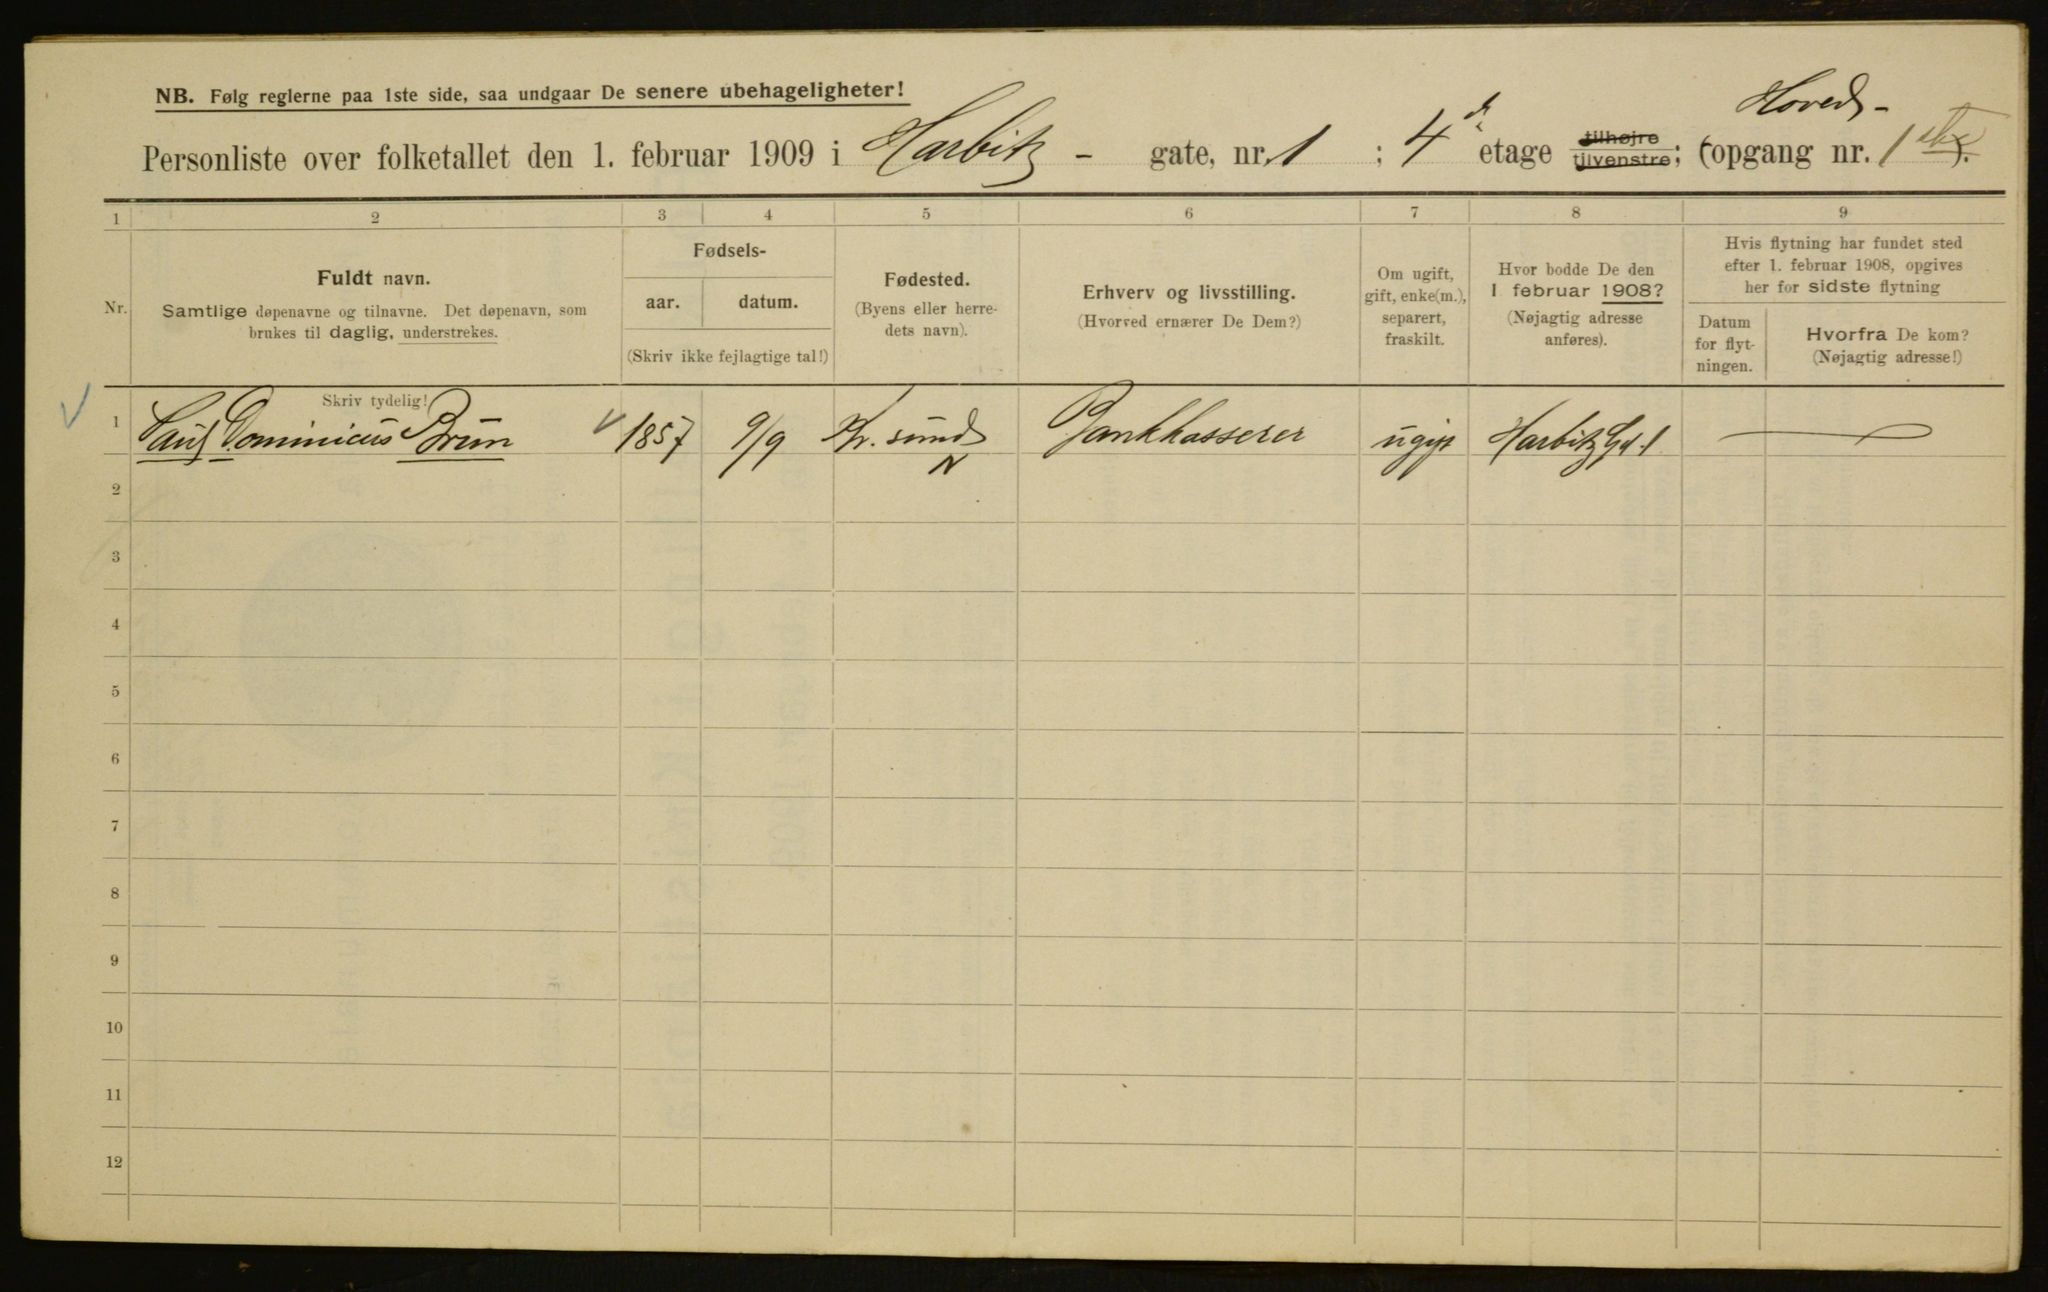 NB. Følg reglerne paa 1ste side, saa undgaar De senere ubehageligheter!
Hoved-
Personliste over folketallet den 1. februar 1909 i Harbitz - gate, nr. 1 ; 4 etage tilhøjre tilvenstre; (opgang nr. 1 ).
1 2 3 4 5 6 7 8 9
Nr.
Fuldt navn.
Samtlige døpenavne og tilnavne. Det døpenavn, som
brukes til daglig, understrekes.
Fødsels-
aar. datum.
(Skriv ikke fejlagtige tal!)
Fødested.
(Byens eller herre-
dets navn).
Erhverv og livsstilling.
(Hvorved ernærer De Dem?)
Om ugift,
gift, enke(m.),
separert,
fraskilt.
Hvor bodde De den
1 februar 1908?
(Nøjagtig adresse
anføres).
Hvis flytning har fundet sted
efter 1. februar 1908, opgives
her for sidste flytning
Datum
for flyt-
ningen.
Hvorfra De kom?
(Nøjagtig adresse!)
Skriv tydelig!
1 Dominicus Brun 1857 9/9 Kr. sund Bankkasserer ugift Harbitz Gd. 1
N
2
3
4
5
6
7
8
9
10
11
12